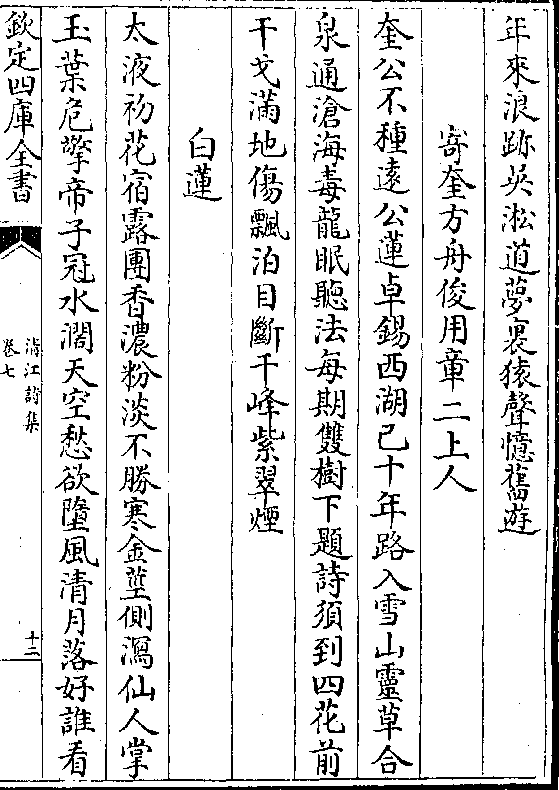 年來浪跡吳淞道夢裏猿聲憶舊遊
寄奎方舟俊用章二上人
奎公不種逺公蓮卓錫西湖已十年路入雪山靈草合
泉通滄海毒龍眠聽法每期雙樹下題詩須到四花前
干戈滿地傷飄泊目斷千峰紫翠煙
白蓮
太液初花宿露團香濃粉淡不勝寒金莖側瀉仙人掌
玉葉危擎帝子冠水濶天空愁欲墮風清月落好誰看
欽定四庫全書
清江詩集
卷七
十二